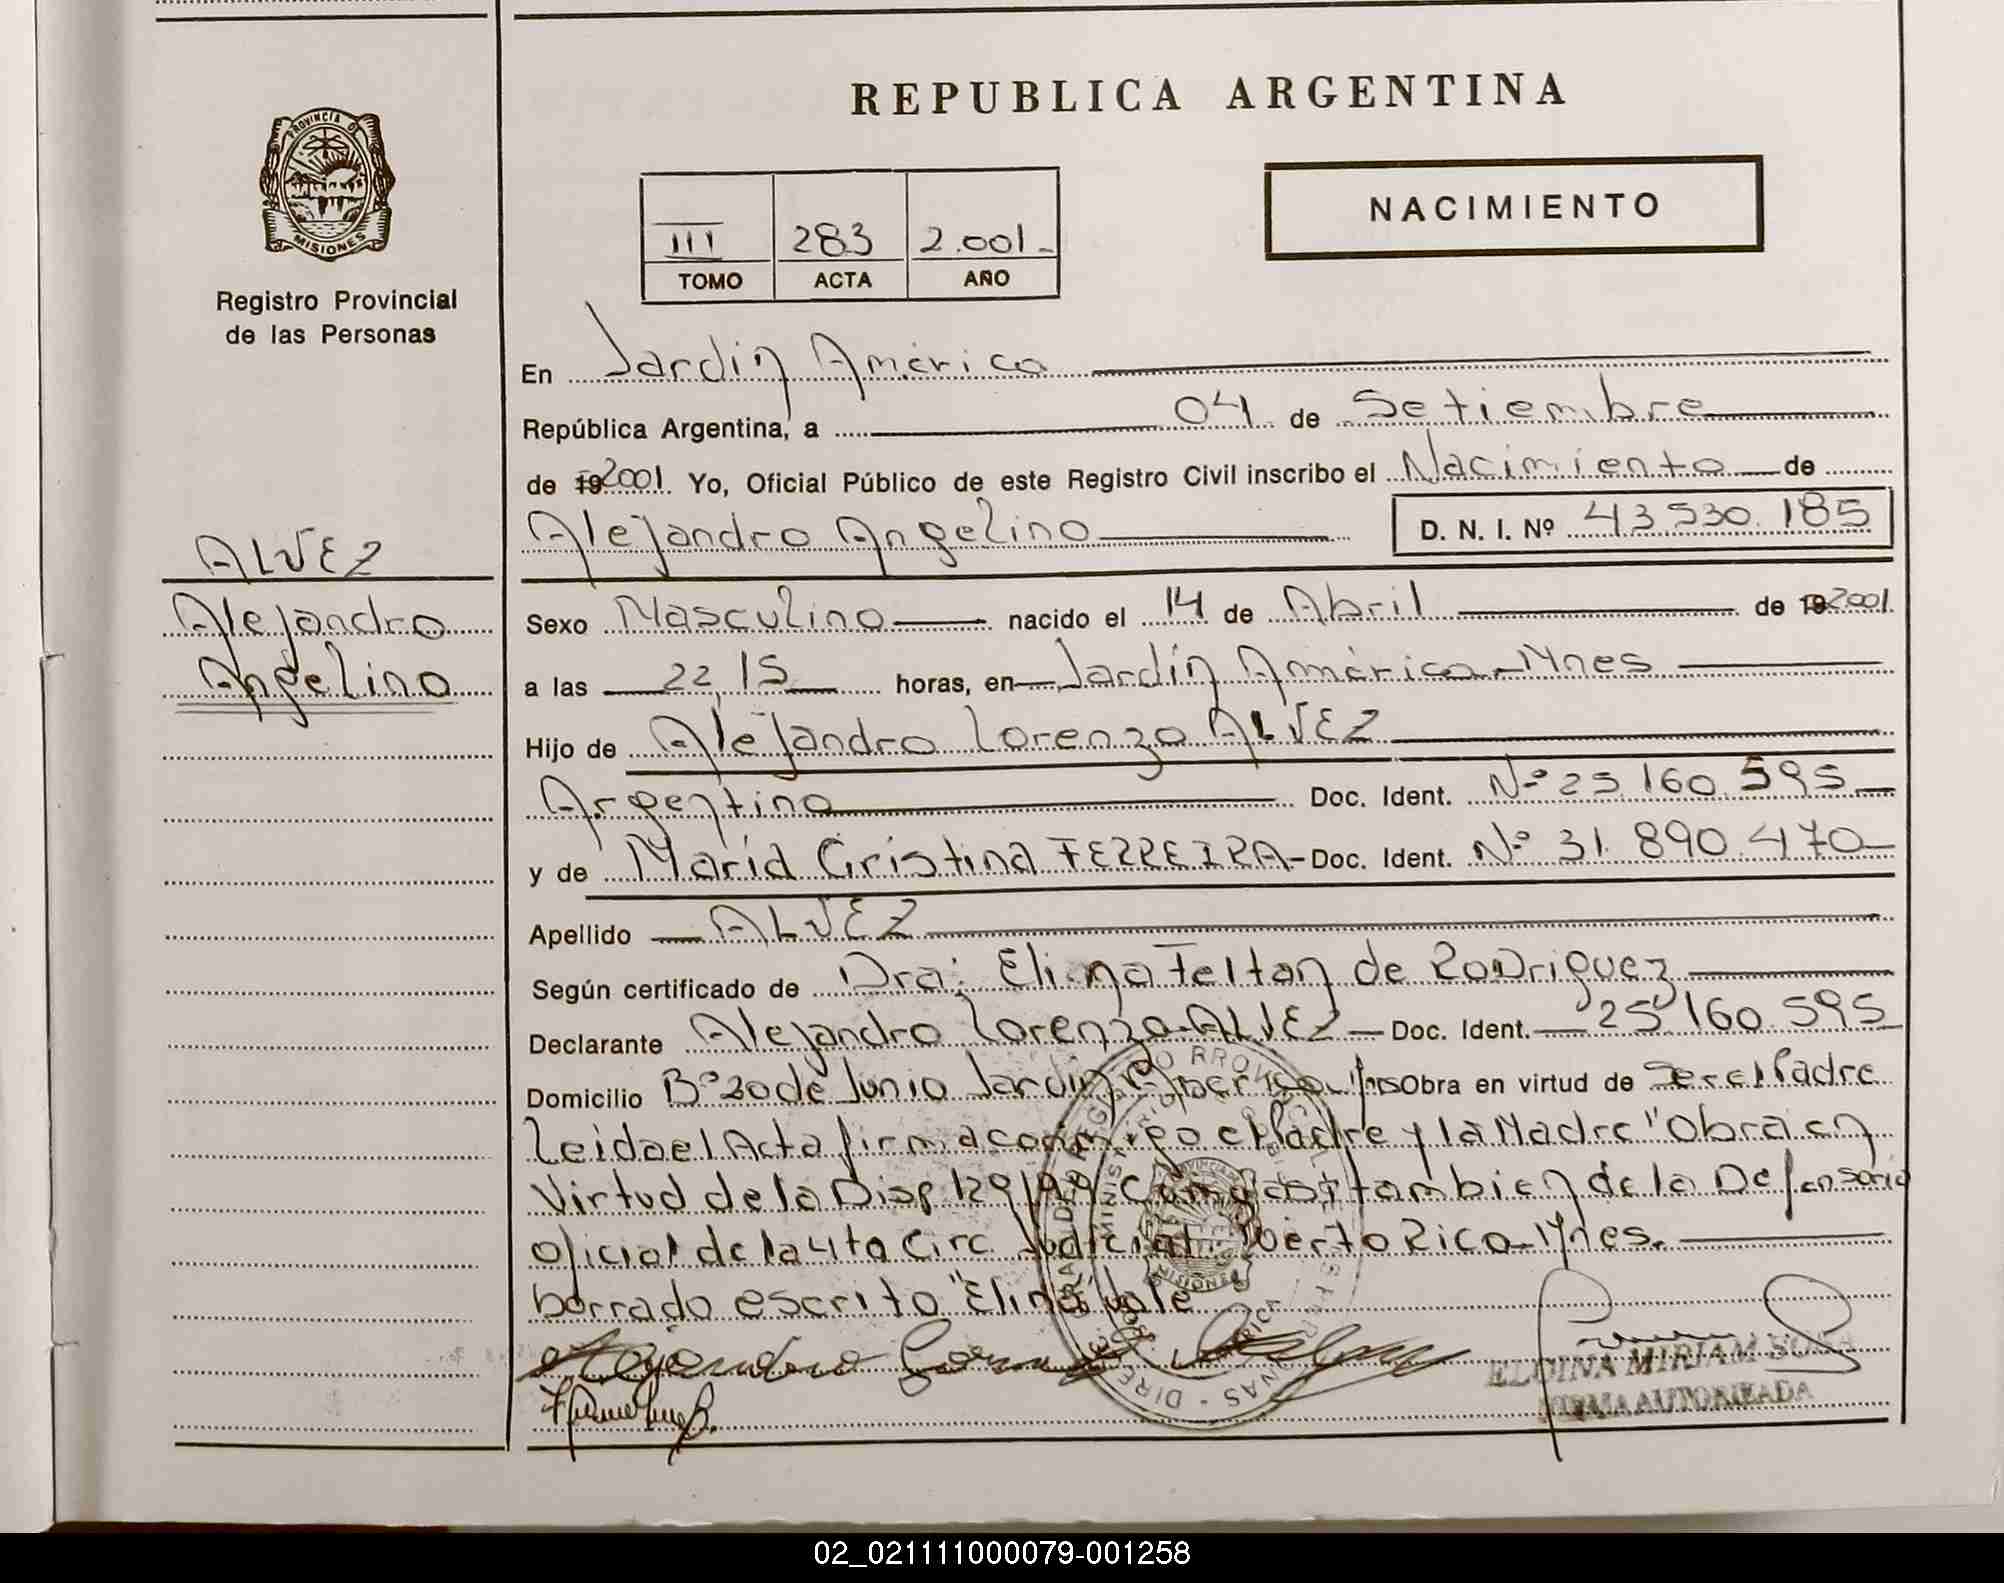 REPUBLICA ARGENTINA
PROVINCIA DE
MISIONES
Registro Provincial
de las Personas
NACIMIENTO
III 283 2.001-
TOMO ACTA AÑO
En Jardin América
República Argentina, a 04 de Setiembre
de 19 2001. Yo, Oficial Público de este Registro Civil inscribo el Nacimiento de
Alejandro Angelino D. N. I. Nº 43.530.185
ALVEZ
Alejandro
Angelino
Sexo Masculino nacido el 14 de Abril de 19 2001
a las 22,15 horas, en Jardín América-Mnes
Hijo de Alejandro Lorenzo ALVEZ
Argentino Doc. Ident. Nº 25.160.595
y de María Cristina FERREIRA- Doc. Ident. Nº 31.890.470
Apellido ALVEZ
Según certificado de Dra: Elina Feltan de Rodriguez
Declarante Alejandro Lorenzo ALVEZ Doc. Ident. 25.160.595
Domicilio Bº 20 de Junio Jardin América Mnes Obra en virtud de Ser el Padre
Leida el Acta firma conmigo el Padre y la Madre "Obra en
Virtud de la Disp 129/99 como asi tambien de la Defensoria
oficial de la 4ta Circ. Judicial Puerto Rico-Mnes.
borrado escrito "Elina" vale
MISIONES
ELGINA MIRIAM SOSA
FIRMA AUTORIZADA
02_021111000079-001258